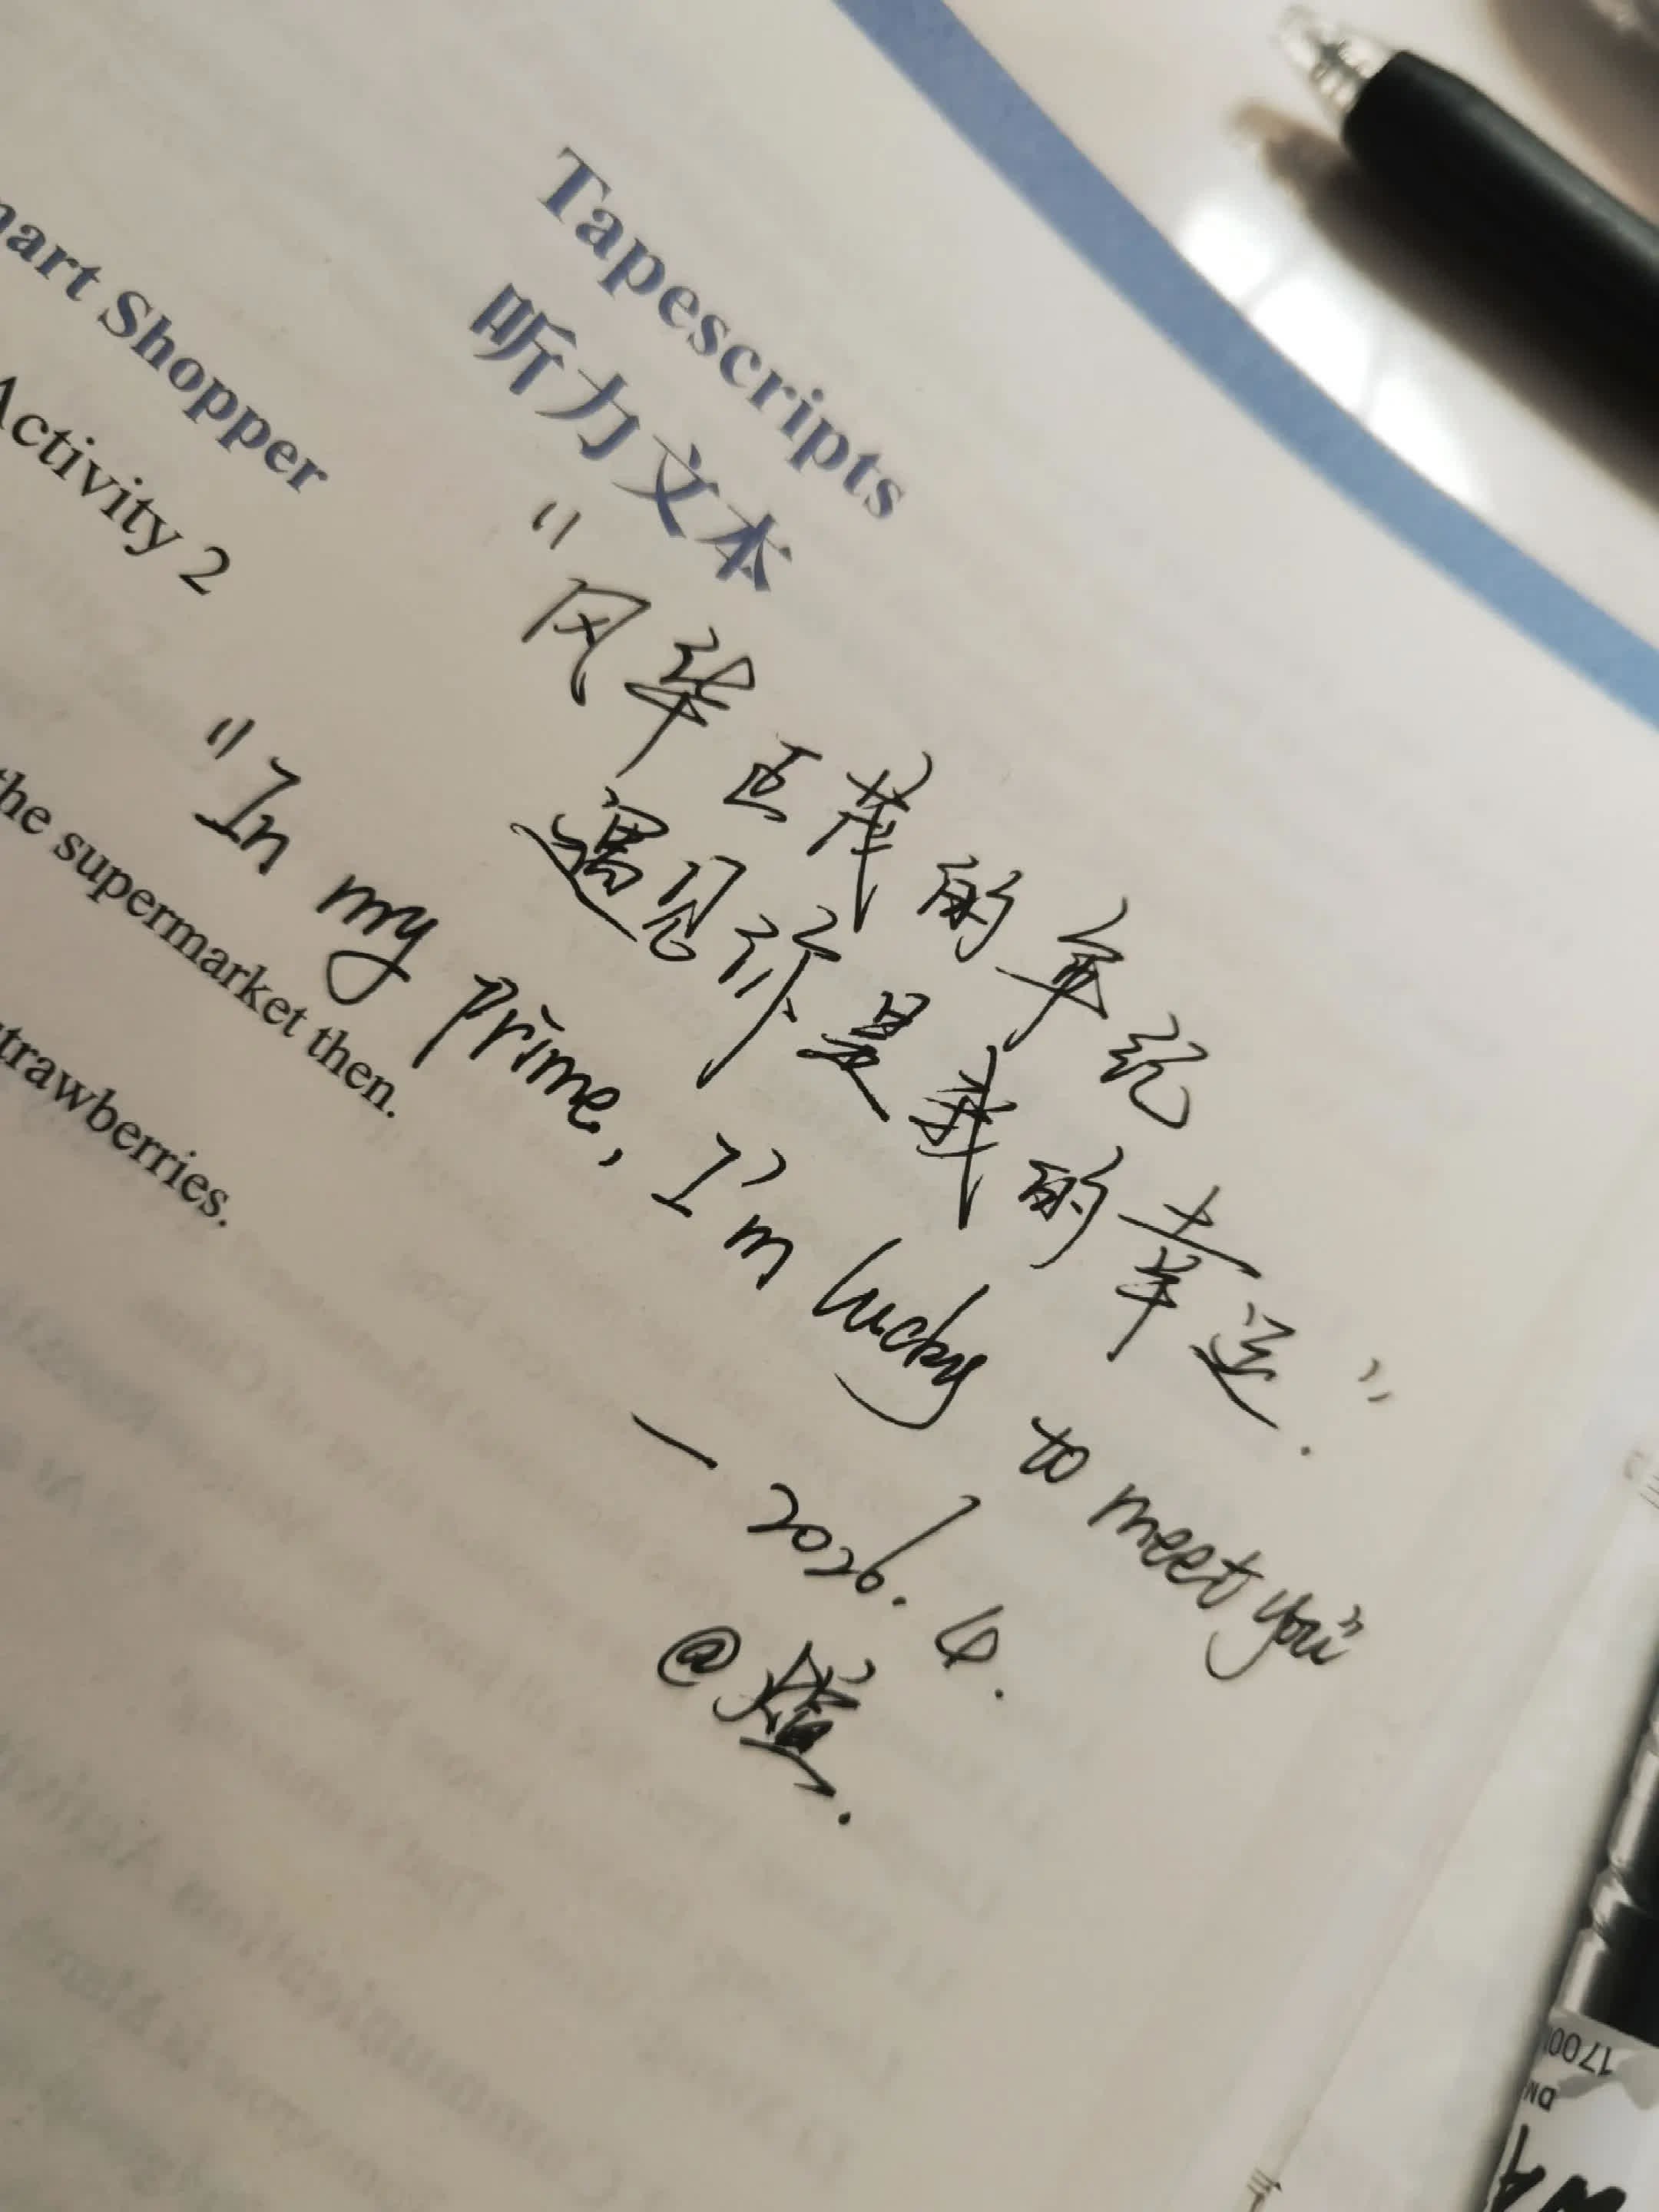 Tapescripts
听力文本
mart Shopper
Activity 2
"风华正茂的年纪
遇见你是我的幸运."
"In my prime, I'm lucky to meet you"
the supermarket then.
trawberries.
— 2026. 4.
@
1700
DN